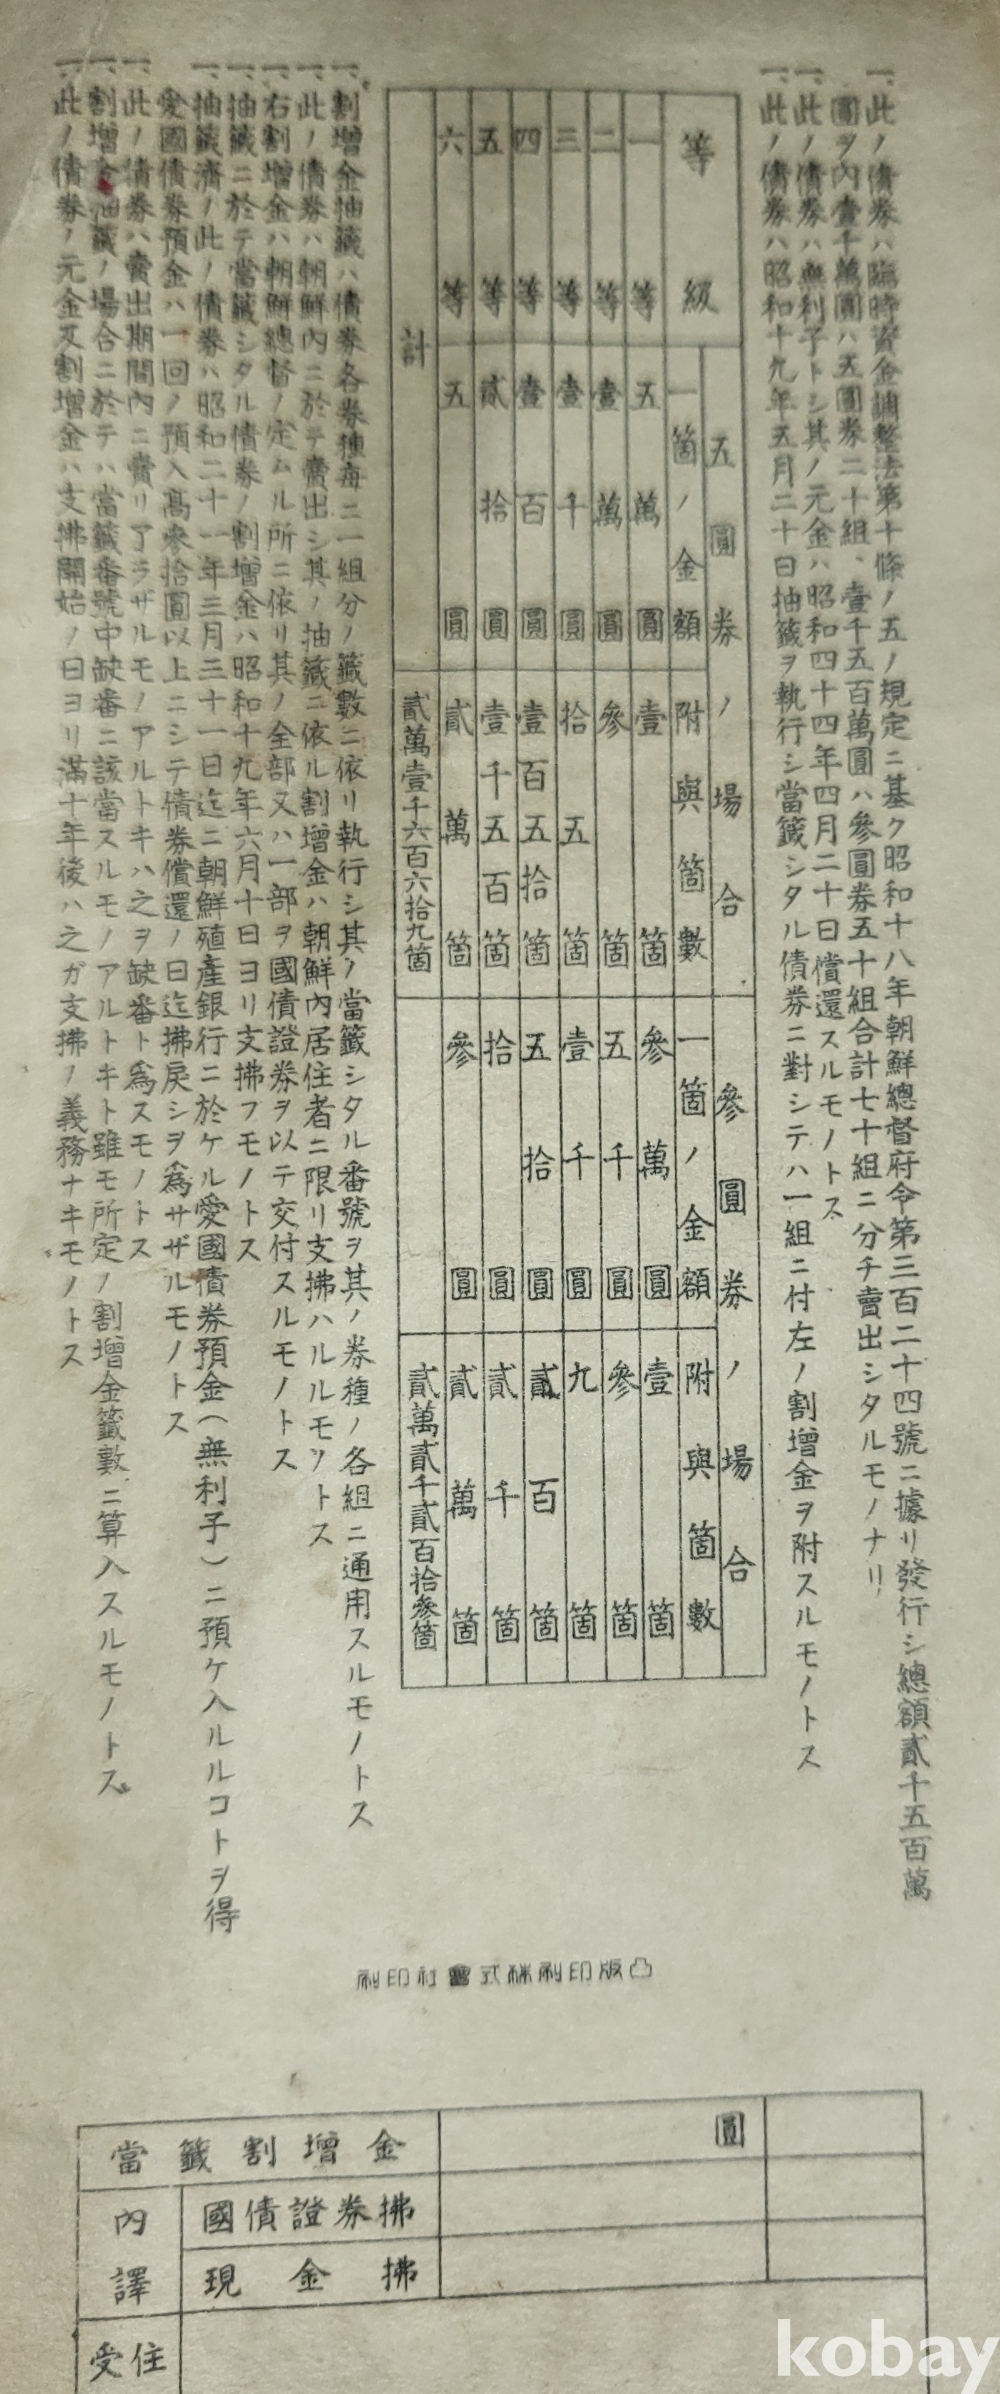 一、此ノ債券ハ臨時資金調整法第十條ノ五ノ規定ニ基ク昭和十八年朝鮮總督府令第三百二十四號ニ據リ發行シ總額貳千五百萬
圓ヲ內壹千萬圓ハ五圓券二十組、壹千五百萬圓ハ參圓券五十組合計七十組ニ分チ賣出シタルモノナリ
一、此ノ債券ハ無利子トシ其ノ元金ハ昭和四十四年四月二十日償還スルモノトス
一、此ノ債券ハ昭和十九年五月二十日抽籤ヲ執行シ當籤シタル債券ニ對シテハ一組ニ付左ノ割增金ヲ附スルモノトス
五圓券ノ場合 參圓券ノ場合
等級 一箇ノ金額 附與箇數 一箇ノ金額 附與箇數
一等 五萬圓 壹箇 參萬圓 壹箇
二等 壹萬圓 參箇 五千圓 參箇
三等 壹千圓 拾五箇 壹千圓 九箇
四等 壹百圓 壹百五拾箇 五拾圓 貳百箇
五等 貳拾圓 壹千五百箇 拾圓 貳千箇
六等 五圓 貳萬箇 參圓 貳萬箇
計 貳萬壹千六百六拾九箇 貳萬貳千貳百拾參箇
一、割增金抽籤ハ債券各券種每ニ一組分ノ籤數ニ依リ執行シ其ノ當籤シタル番號ヲ其ノ券種ノ各組ニ通用スルモノトス
一、此ノ債券ハ朝鮮內ニ於テ賣出シ其ノ抽籤ニ依ル割增金ハ朝鮮內居住者ニ限リ支拂ハルルモノトス
一、右割增金ハ朝鮮總督ノ定ムル所ニ依リ其ノ全部又ハ一部ヲ國債證券ヲ以テ交付スルモノトス
一、抽籤ニ於テ當籤シタル債券ノ割增金ハ昭和十九年六月十日ヨリ支拂フモノトス
一、抽籤濟ノ此ノ債券ハ昭和二十一年三月三十一日迄ニ朝鮮殖產銀行ニ於ケル愛國債券預金(無利子)ニ預ケ入ルルコトヲ得
愛國債券預金ハ一回ノ預入高參拾圓以上ニシテ債券償還ノ日迄拂戾シヲ爲サザルモノトス
一、此ノ債券ハ賣出期間內ニ賣リ了ラザルモノアルトキハ之ヲ缺番ト爲スモノトス
一、割增金抽籤ノ場合ニ於テハ當籤番號中缺番ニ該當スルモノアルトキト雖モ所定ノ割增金籤數ニ算入スルモノトス
一、此ノ債券ノ元金及割增金ハ支拂開始ノ日ヨリ滿十年後ハ之ガ支拂ノ義務ナキモノトス
凸版印刷株式會社印刷
當籤割增金 圓
內譯 國債證券拂
現金拂
受住
kobay